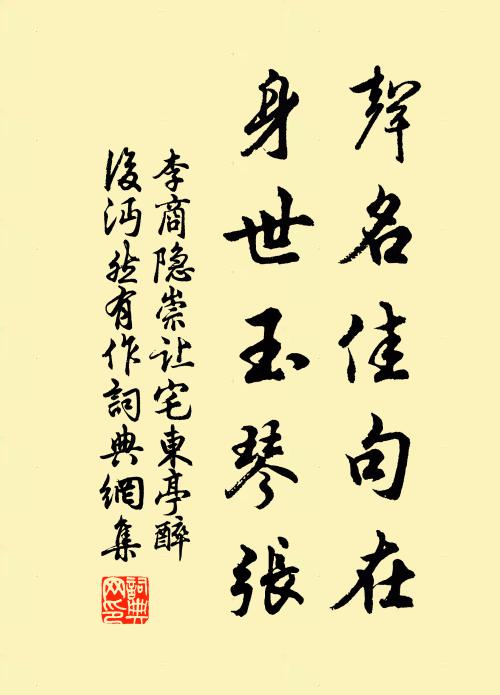 聲名佳句在
身世玉琴張
李商隐崇让宅東亭醉
後沔然有作詞典網集